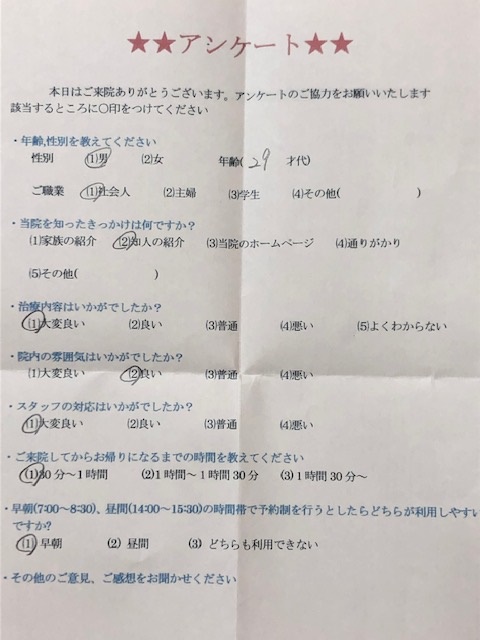 ★★アンケート★★
本日はご来院ありがとうございます。アンケートのご協力をお願いいたします
該当するところに〇印をつけてください
・年齢,性別を教えてください
性別 (1)男 (2)女 年齢( 29 才代)
ご職業 (1)社会人 (2)主婦 (3)学生 (4)その他( )
・当院を知ったきっかけは何ですか？
(1)家族の紹介 (2)知人の紹介 (3)当院のホームページ (4)通りがかり
(5)その他( )
・治療内容はいかがでしたか？
(1)大変良い (2)良い (3)普通 (4)悪い (5)よくわからない
・院内の雰囲気はいかがでしたか？
(1)大変良い (2)良い (3)普通 (4)悪い
・スタッフの対応はいかがでしたか？
(1)大変良い (2)良い (3)普通 (4)悪い
・ご来院してからお帰りになるまでの時間を教えてください
(1)30分～1時間 (2)1時間～1時間30分 (3)1時間30分～
・早朝(7:00～8:30)、昼間(14:00～15:30)の時間帯で予約制を行うとしたらどちらが利用しやすい
ですか?
(1) 早朝 (2) 昼間 (3) どちらも利用できない
・その他のご意見、ご感想をお聞かせください